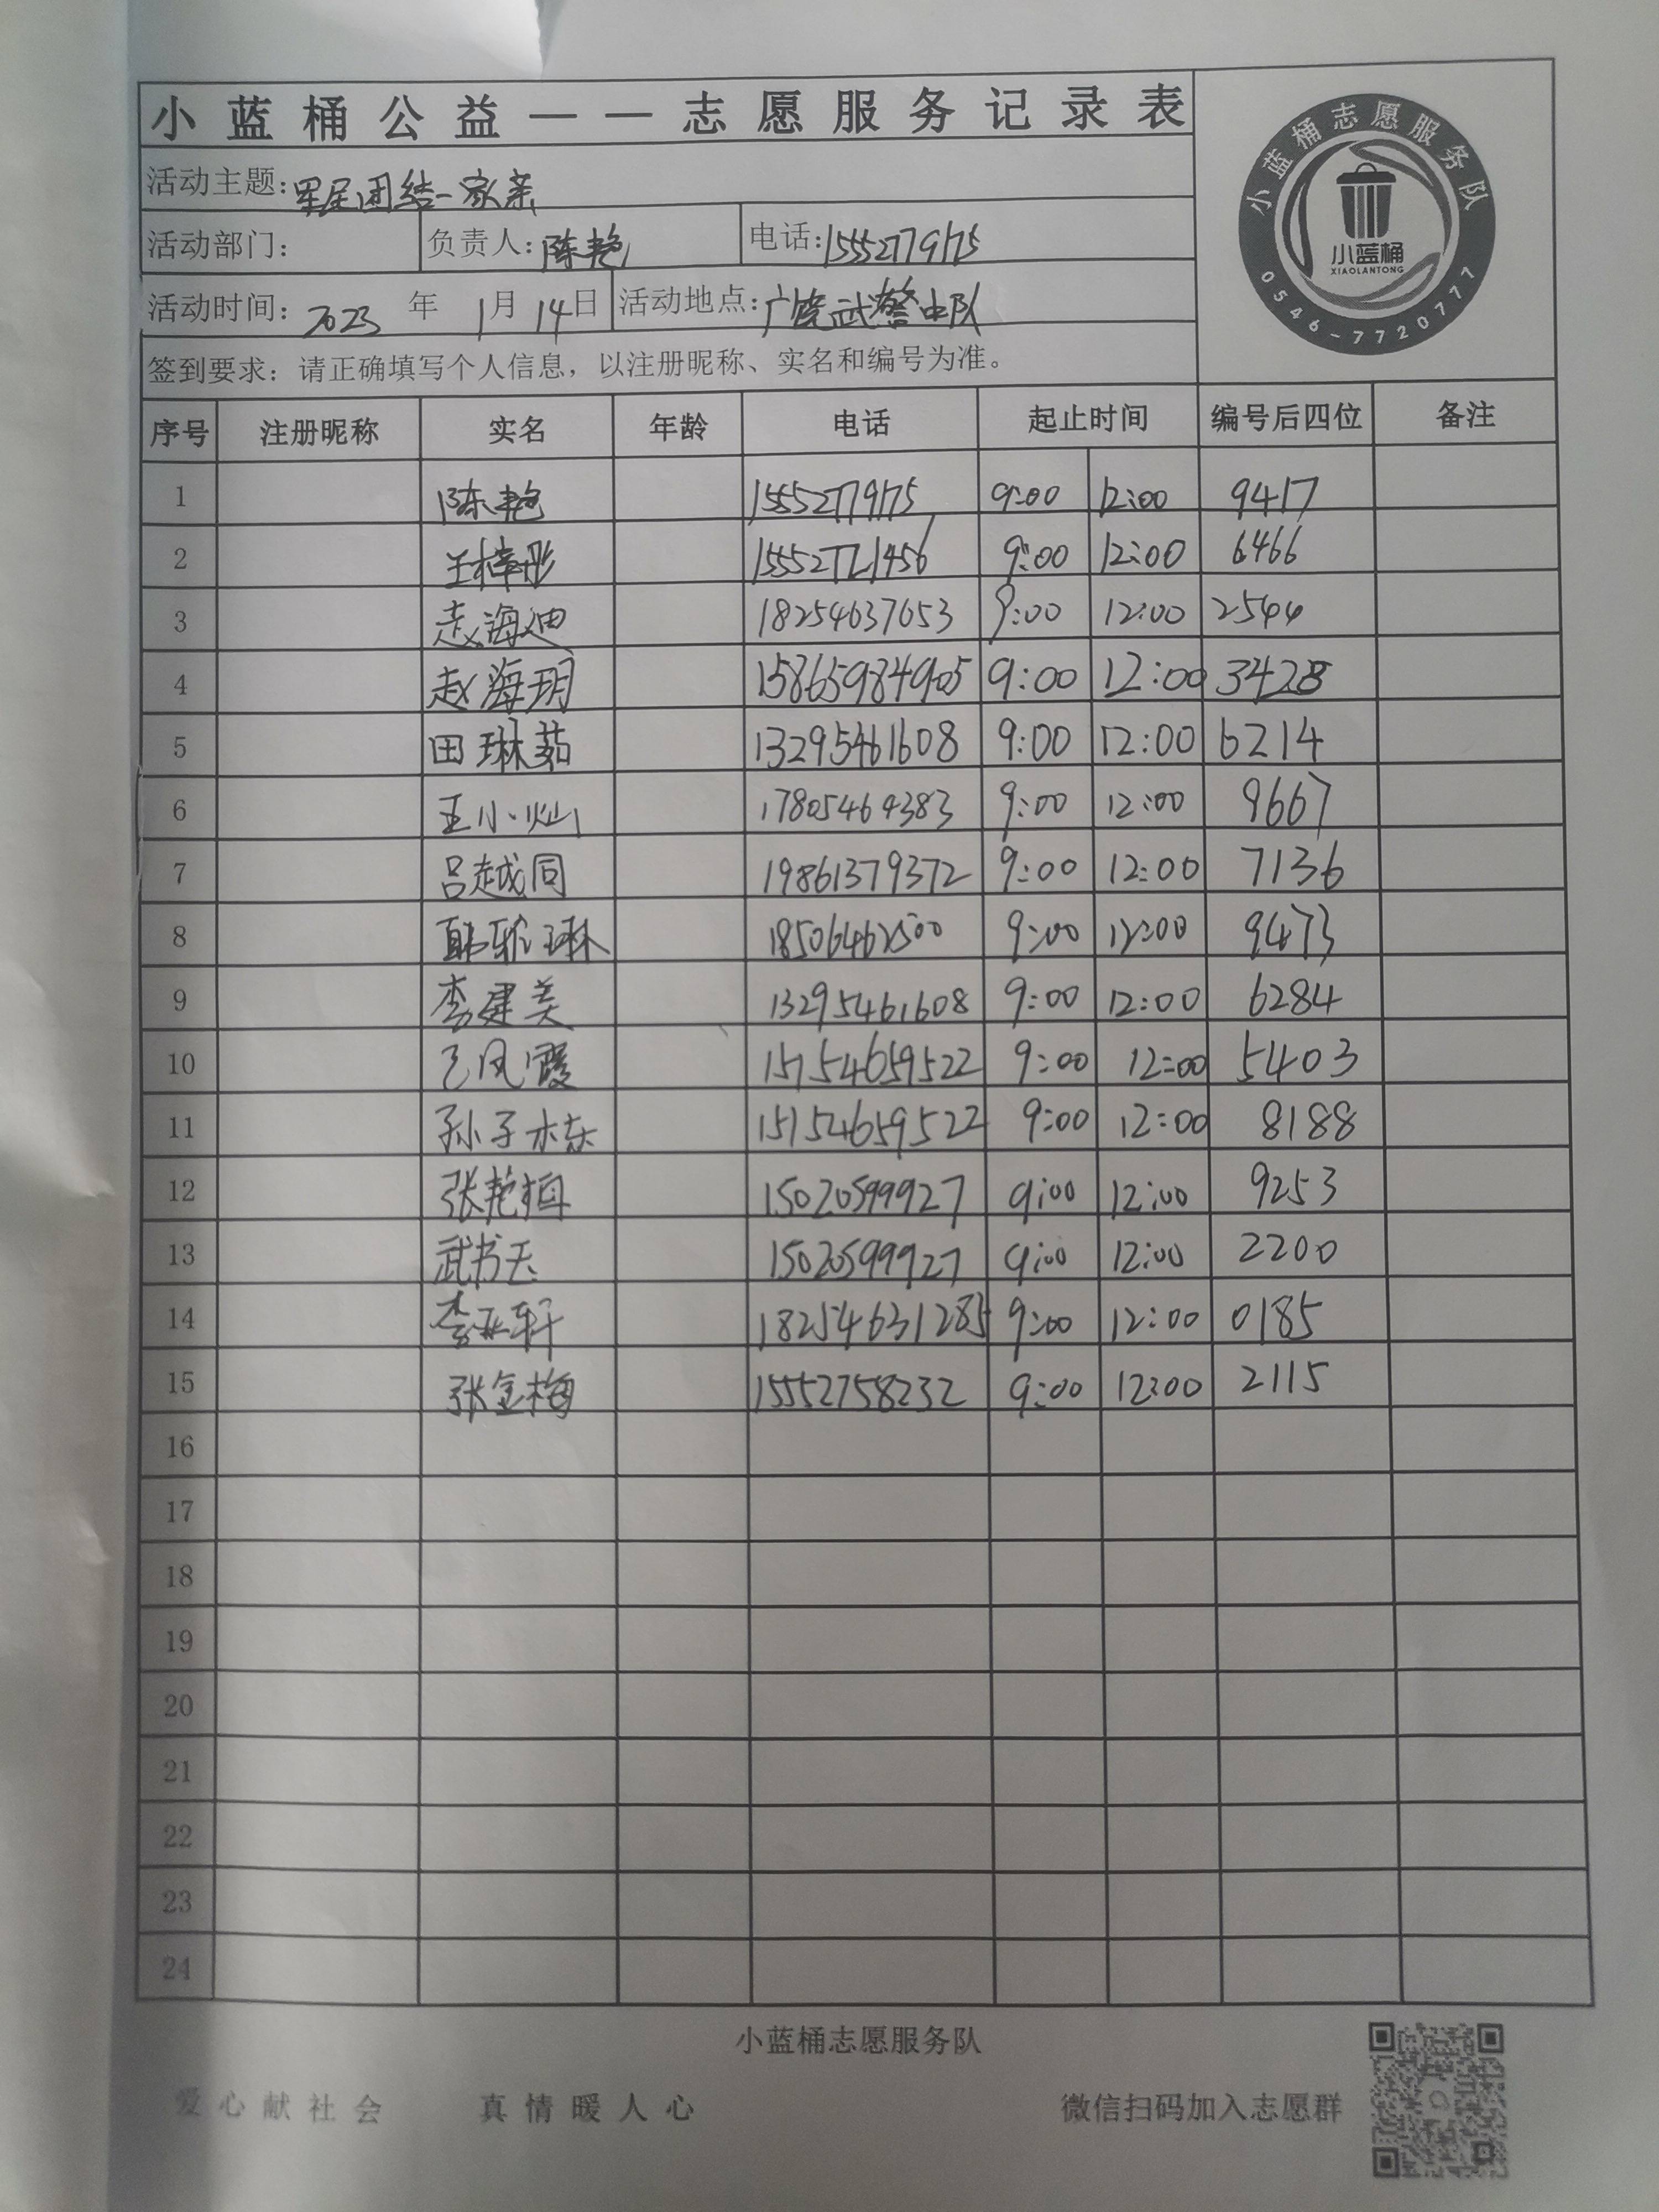 小蓝桶公益——志愿服务记录表
小蓝桶志愿服务队
小蓝桶
XIAOLANTONG
0546-7720777
活动主题：军民团结一家亲
活动部门： 负责人：陈艳 电话：15552779175
活动时间：2023年1月14日 活动地点：广饶武警中队
签到要求：请正确填写个人信息，以注册昵称、实名和编号为准。
序号 注册昵称 实名 年龄 电话 起止时间 编号后四位 备注
1 陈艳 15552779175 9:00 12:00 9417
2 王梓彤 15552721456 9:00 12:00 6466
3 赵海迪 18254637653 9:00 12:00 2544
4 赵海玥 15865984905 9:00 12:00 3428
5 田琳茹 13295461608 9:00 12:00 6214
6 王小灿 17805464383 9:00 12:00 9667
7 吕越同 19861379372 9:00 12:00 7136
8 18506462500 9:00 12:00 9473
9 李建美 13295461608 9:00 12:00 6284
10 凤霞 15154659522 9:00 12:00 5403
11 孙子栋 15154659522 9:00 12:00 8188
12 张艳梅 15020599927 9:00 12:00 9253
13 武书玉 15020599927 9:00 12:00 2200
14 李亚轩 18254631285 9:00 12:00 0185
15 张金梅 15552758232 9:00 12:00 2115
16
17
18
19
20
21
22
23
24
小蓝桶志愿服务队
爱心献社会 真情暖人心 微信扫码加入志愿群